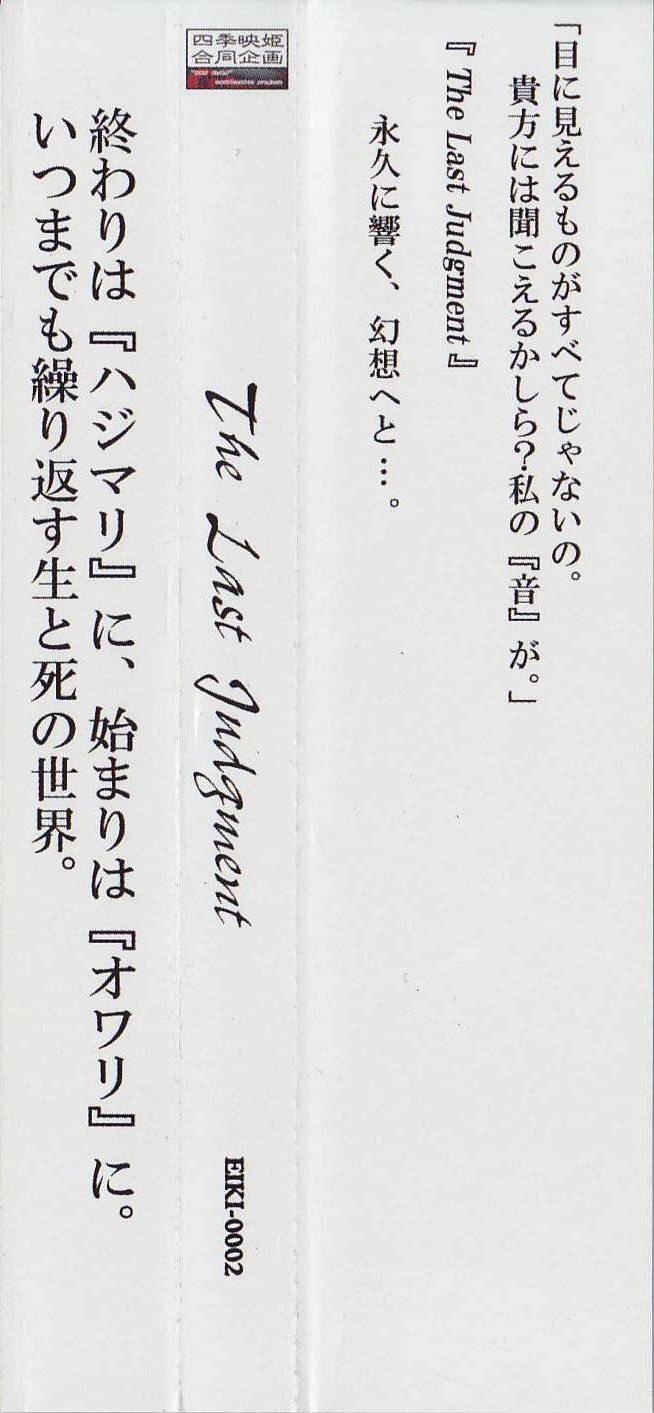 「目に見えるものがすべてじゃないの。
貴方には聞こえるかしら？私の『音』が。」
『The Last Judgment』
永久に響く、幻想へと…。
四季映姫
合同企画
The Last Judgment
EIKI-0002
終わりは『ハジマリ』に、始まりは『オワリ』に。
いつまでも繰り返す生と死の世界。